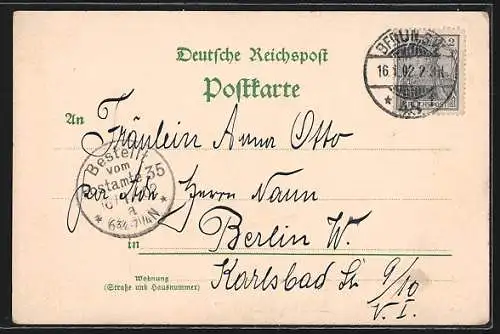 Deutsche Reichspost
Postkarte
BERLIN S.W.
16.1.02.2-3N.
2
An Fräulein Anna Otto
Bestellt
vom
Postamte 35
6¾-7¼N
per Adr. Herrn Nann
in Berlin W.
Karlsbad St. 9/10
V. I.
Wohnung
(Straße und Hausnummer)